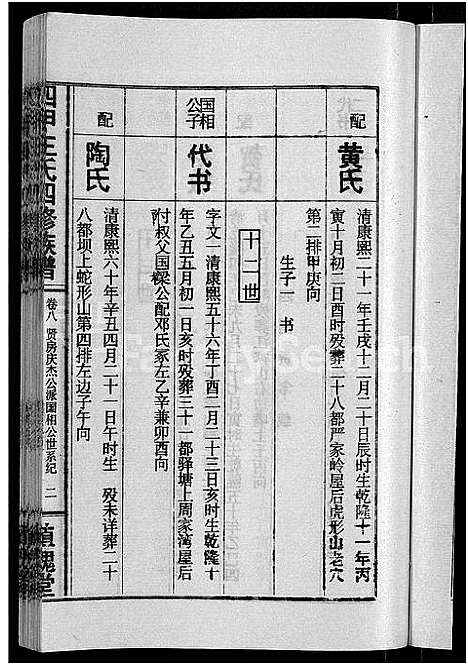 配
黄氏
清康熙二十一年壬戌十二月二十日辰时生乾隆十一年丙
寅十月初二日酉时殁葬二十八都严家岭屋后虎形山老穴
第二排甲庚向
生子一 书
十二世
国相
公子
代书
字文一清康熙五十六年丁酉二月二十三日亥时生乾隆十
年乙丑五月初一日亥时殁葬三十一都驿塘上周家湾屋后
付叔父国梁公配邓氏冢左乙辛兼卯酉向
配
陶氏
清康熙六十年辛丑四月二十一日午时生 殁未详葬二十
八都坝上蛇形山第四排左边子午向
王氏四修族谱
卷八 贤房庆杰公派国相公世系纪
二
槐堂